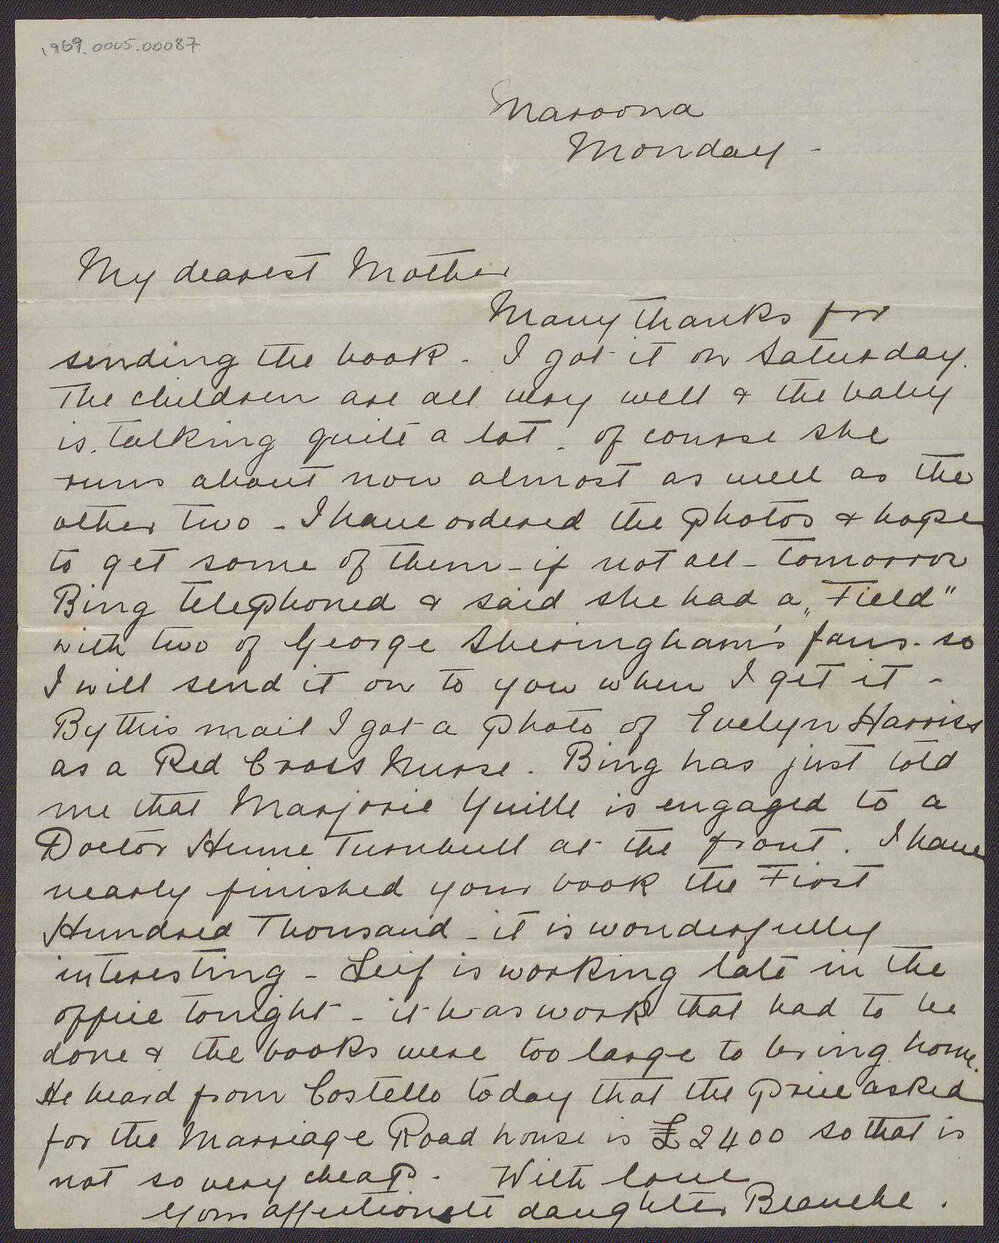 1969.0005.00087
Maroona
Monday -
My dearest Mother
Many thanks for
sending the book - I got it on Saturday.
The children are all very well & the baby
is talking quite a lot. of course she
runs about now almost as well as the
other two - I have ordered the photos & hope
to get some of them - if not all - tomorrow
Bing telephoned & said she had a „Field"
with two of George Sheringham's fans - so
I will send it on to you when I get it -
By this mail I got a photo of Evelyn Harriss
as a Red Cross Nurse. Bing has just told
me that Marjorie Yuille is engaged to a
Doctor Hume Turnbull at the front. I have
nearly finished your book the First
Hundred Thousand - it is wonderfully
interesting - Leif is working late in the
office tonight - it was work that had to be
done & the books were too large to bring home.
He heard from Costello today that the price asked
for the Marriage Road house is £2400 so that is
not so very cheap. With love
Your affectionate daughter Blanche.